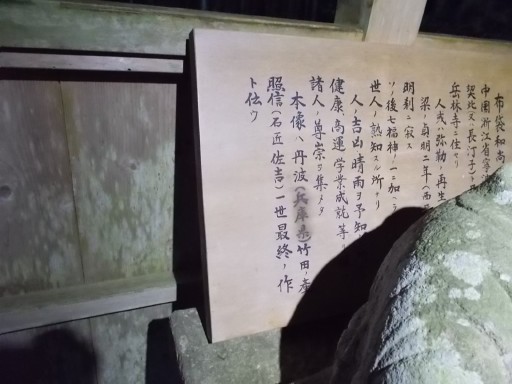 布袋和尚
中国浙江省寧
契此又ハ長汀子ト
岳林寺ニ住セリ
人或ハ弥勒ノ再生
梁ノ貞明二年(西
明刹ニ寂ス
ソノ後七福神ノ一ニ加ハ
世人ノ熟知スル所ナリ
人ノ吉凶晴雨ヲ予知
健康、高運、学業成就等
諸人ノ尊崇ヲ集メタ
本像ハ丹波(兵庫県)竹田ノ産
照信(石匠佐吉)一世最終ノ作
ト伝ウ